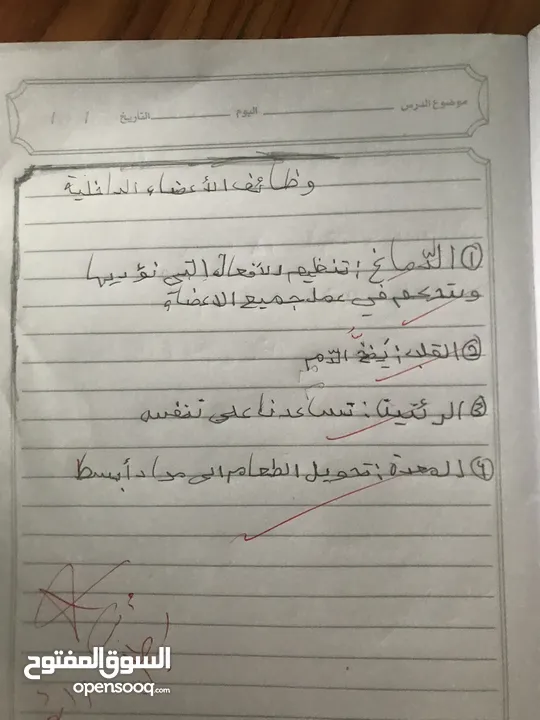 موضوع الدرس اليوم التاريخ / /
وظائف الأعضاء الداخلية
① الدّماغ : تنظيم الافعال التي نؤديها
ويتحكم في عمل جميع الاعضاء
② القلب : يَضخُّ الدّم
③ الرئتين : تساعدنا على تنفس
④ المعدة : تحويل الطعام الى مواد أبسط
السوق المفتوح
opensooq.com